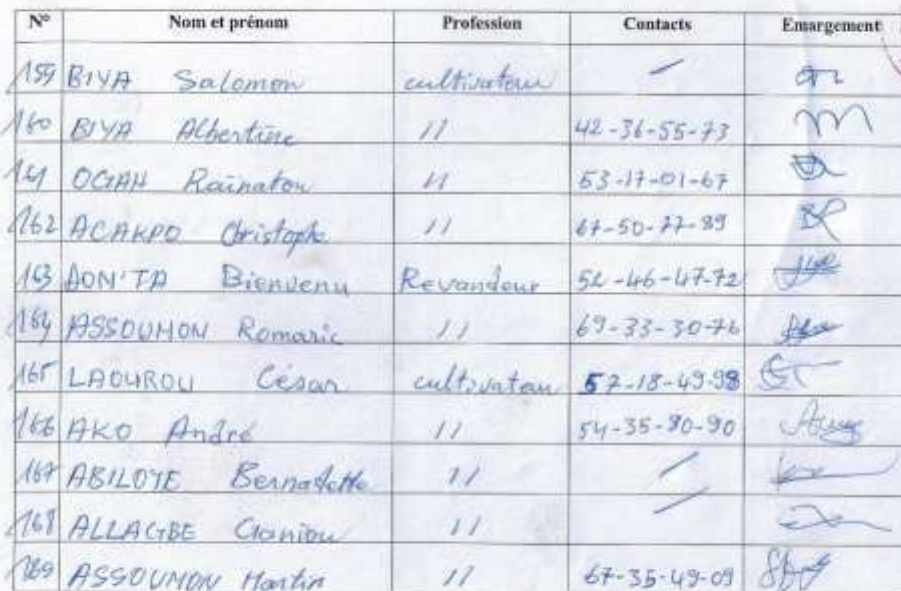 N° Nom et prénom Profession Contacts Emargement
159 BIYA Salomon cultivateur /
160 BIYA Albertine // 42-36-55-73
161 OGAH Rainatou // 53-17-01-67
162 ACAKPO Christophe // 67-50-77-89
163 AON'TA Bienvenu Revandeur 52-46-47-72
164 ASSOUMON Romaric // 69-33-30-76
165 LAOUROU César cultivateur 57-18-49-98
166 AKO André // 54-35-80-90
167 ABILOYE Bernadette // /
168 ALLAGBE Ganiou // /
169 ASSOUMON Martin // 67-35-49-09